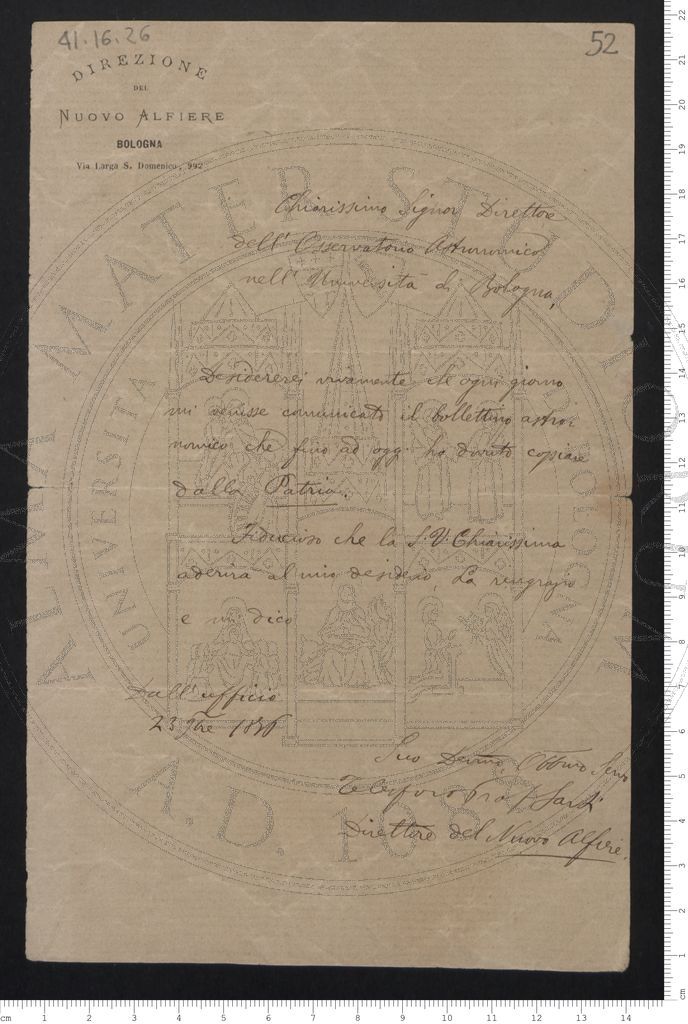 41.16.26
52
DIREZIONE
DEL
NUOVO ALFIERE
BOLOGNA
Via Larga S. Domenico, 992
Chiarissimo Signor Direttore
dell'Osservatorio Astronomico
nell'Università di Bologna,
Desidererei vivamente che ogni giorno
mi venisse comunicato il bollettino astro-
nomico che fino ad oggi ho dovuto copiare
dalla Patria.
Fiducioso che la S. V. Chiarissima
aderirà al mio desiderio, La ringrazio
e mi dico
Dall'ufficio
23 7bre 1876
Suo Devmo, Obbmo Servo
Telesforo Sarti
Direttore del Nuovo Alfiere.
ALMA MATER STUDIORUM
UNIVERSITA DI BOLOGNA
A.D. 1088